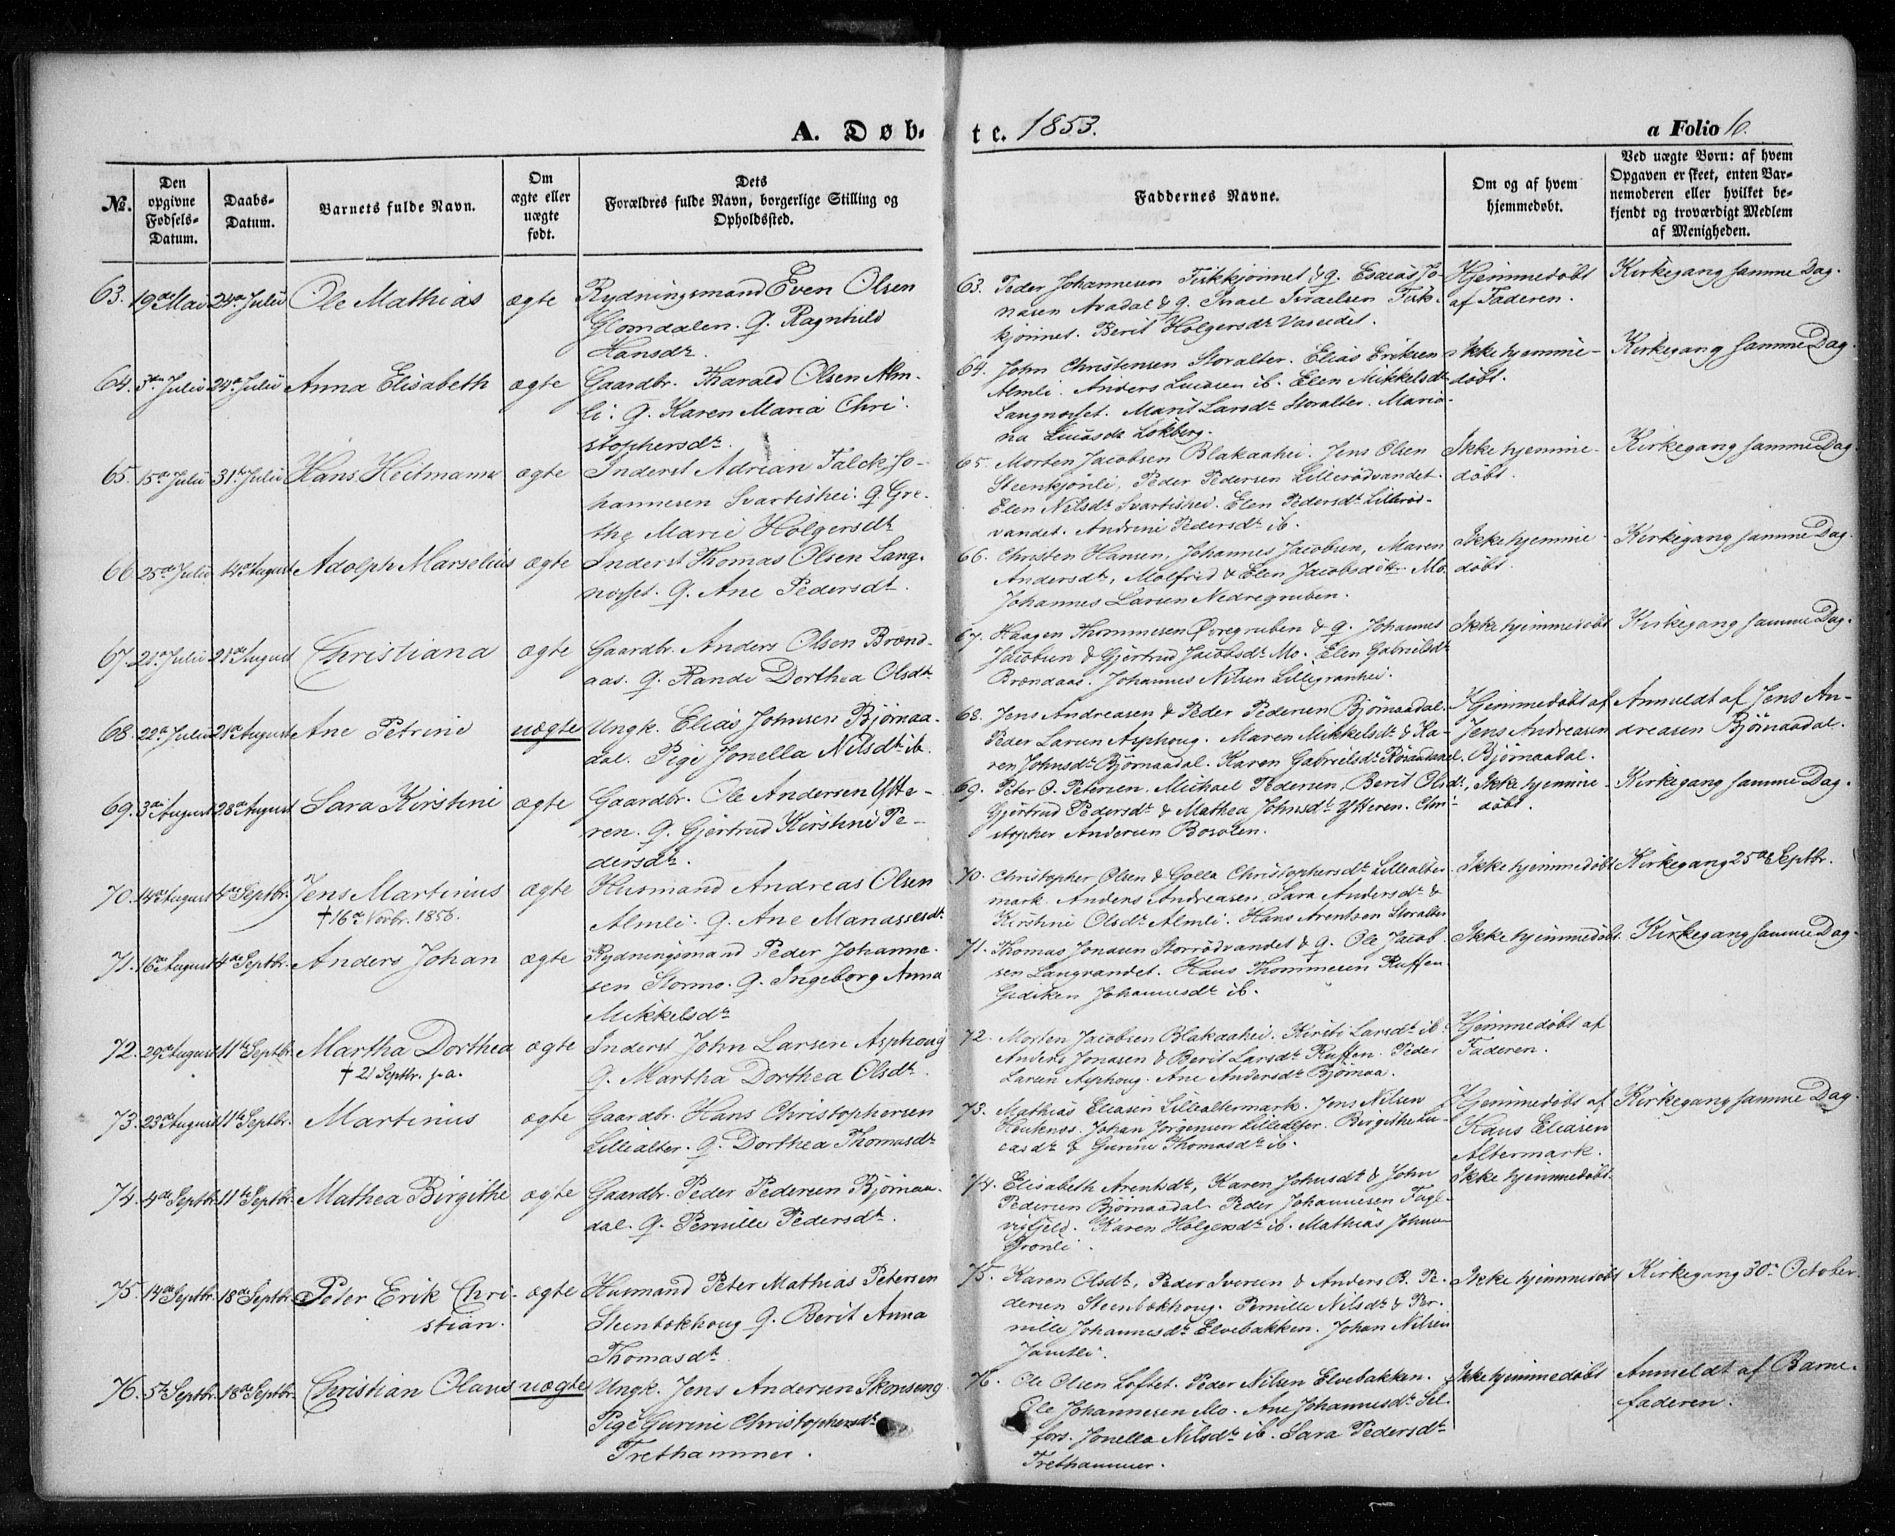 A. Døb-
te. 1853.
a Folio 6.
№.
Den opgivne Fødsels-Datum.
Daabs-Datum.
Barnets fulde Navn.
Om ægte eller uægte født.
Dets Forældres fulde Navn, borgerlige Stilling og Opholdssted.
Faddernes Navne.
Om og af hvem hjemmedøbt.
Ved uægte Børn: af hvem Opgaven er skeet, enten Bar-
nemoderen eller hvilket be-
kjendt og troværdigt Medlem
af Menigheden.
63. 19de Mai 24de Julii Ole Mathias ægte Rydningsmand Even Olsen
Glomdalen. Q. Ragnhild
Hansdr.
63. Peder Johannesen Fiskkjønnet & Q. Esaias Jo-
nasen Avadal & Q. Israel Israelsen Fisk-
kjønnet. Berit Holgersdr Vasseidet.
Hjemmedøbt
af Faderen.
Kirkegang samme Dag.
64. 3die Julii 24de Julii Anna Elisabeth ægte Gaardbr. Harald Olsen Alm-
li. Q. Karen Maria Chri-
stophersdr.
64. John Christensen Storalter. Elias Eriksen
Almli. Anders Luiasen ib. Elen Mikkelsdr
Langnæsset. Marit Larsdr Storalter. Maria-
na Luiasdr Lokberg.
Ikke hjemme-
døbt.
Kirkegang samme Dag.
65. 15de Julii 31te Julii Hans Heitmann ægte Inderst Adrian Falck Jo-
hannesen Svartishei. Q. Gre-
the Marie Holgersdr
65. Morten Jacobsen Blakaahei. Jens Olsen
Steenkjønli. Peder Pedersen Lillerødvandet.
Elen Nilsdr Svartishei. Elen Pedersdr Lillerød-
vandet. Andrine Pedersdr ib.
Ikke hjemme-
døbt.
Kirkegang samme Dag.
66. 25de Julii 14de August Adolph Marselius ægte Inderst Thomas Olsen Lang-
næsset. Q. Ane Pedersdr.
66. Christen Hansen, Johannes Jacobsen, Maren
Andersdr, Molfrid & Elen Jacobsdtr Mo.
Johannes Larsen Nedregruben.
Ikke hjemme-
døbt.
Kirkegang samme Dag.
67. 21de Julii 21de August Christiana ægte Gaardbr. Anders Olsen Brænd-
aas. Q. Randi Dorthea Olsdr
67. Haagen Thommesen Øvregruben & Q. Johannes
Jacobsen & Gjertrud Jacobsdr Mo. Elen Gabrielsdr
Brændaas. Johannes Nilsen Lillegranhei.
Ikke hjemmedøbt
Kirkegang samme Dag.
68. 22de Julii 21de August Ane Petrine uægte Ungk. Elias Johnsen Bjørnaa-
dal. Pige Jonella Nilsdr ib.
68. Jens Andreasen & Peder Pedersen Bjørnaadal.
Peder Larsen Asphoug. Maren Mikkelsdr & Ka-
ren Johnsdr Bjørnaadal. Karen Gabrielsdr
Hjemmedøbt af
Jens Andreasen
Bjørnaadal.
Anmeldt af Jens An-
dreasen Bjørnaadal.
69. 3de August 28de August Sara Kirstine ægte Gaardbr. Ole Andersen Ytte-
ren. Q. Gjertrud Kirstine Pe-
dersdr.
69. Peter O. Petersen, Michael Pedersen, Berit Olsdr,
Gjertrud Pedersdr & Mathea Johnsdr Ytteren. Chri-
stopher Andersen Bosolen.
Ikke hjemme-
døbt.
Kirkegang samme Dag.
70. 14de August 4de Septbr. Jens Martinus ægte Husmand Andreas Olsen
† 16de Novbr. 1856.
Almli. Q. Ane Manassesdr
70. Christopher Olsen & Golla Christophersdr Lillealter-
mark. Anders Andreasen, Sara Andersdr &
Kirstine Olsdr Almli. Hans Arentsen Storalter
Ikke hjemmedøbt
Kirkegang 25de Septbr.
71. 16de August 4de Septbr. Anders Johan ægte Rydningsmand Peder Johanne-
sen Stormo. Q. Ingeborg Anna
Mikkelsdr
71. Thomas Jonasen Storrødvandet & Q. Ole Jacob-
sen Langvandet. Hans Thommesen Ruffen
Gidiken Johannesdr ib.
Ikke hjemmedøbt.
Kirkegang samme Dag.
72. 29de August 11te Septbr. Martha Dorthea ægte Inderst John Larsen Asphoug
† 21 Septbr. s.a.
Q. Martha Dorthea Olsdr.
72. Morten Jacobsen Blakaahei. Kirsti Larsdr ib.
Anders Jonasen & Berit Larsdr Ruffen. Peder
Larsen Asphoug. Ane Andersdr Bjørnaa.
Hjemmedøbt af
Faderen.
73. 23de August 11te Septbr. Martinus ægte Gaardbr. Hans Christophersen
Lillealter. Q. Dorthea Thomasdr
73. Mathias Eliasen Lillealtermark. Jens Nilsen
Houknes. Johan Jørgensen Lillealter. Birgithe Lu-
casdr & Gurine Thomasdr ib.
Hjemmedøbt af
Hans Eliasen
Altermark.
Kirkegang samme Dag.
74. 4de Septbr. 11te Septbr. Mathea Birgithe ægte Gaardbr. Peder Pedersen Bjørnaa-
dal. Q. Pernille Pedersdr.
74. Elisabeth Arentsdr, Karen Johnsdr & John
Pedersen Bjørnaadal. Peder Johannesen Fagl-
vigfjeld. Karen Holgersdr ib. Mathias Johnsen
Grønli.
Ikke hjemmedøbt.
75. 14de Septbr. 18de Septbr. Peter Erik Chri-
stian. ægte Husmand Peter Mathias Petersen
Steenbokhoug Q. Berit Anna
Thomasdr.
75. Karen Olsdr, Peder Iversen & Anders B. Pe-
dersen Steenbokhoug. Pernille Nilsdr & Per-
nille Johannesdr Elvebakken. Johan Nilsen
Jamtli.
Ikke hjemmedøbt
Kirkegang 30de October.
76. 5te Septbr. 18de Septbr. Christian Olaus uægte Ungk. Jens Andersen Skonseng.
Pige Gurine Christophersdr
Trethammer.
76. Ole Olsen Loftet. Peder Nilsen Elvebakken.
Ole Johannesen Mo. Ane Johannesdr Sel-
fors. Jonella Nilsdr ib. Sara Pedersdr
Trethammer.
Ikke hjemmedøbt
Anmeldt af Barne-
faderen.